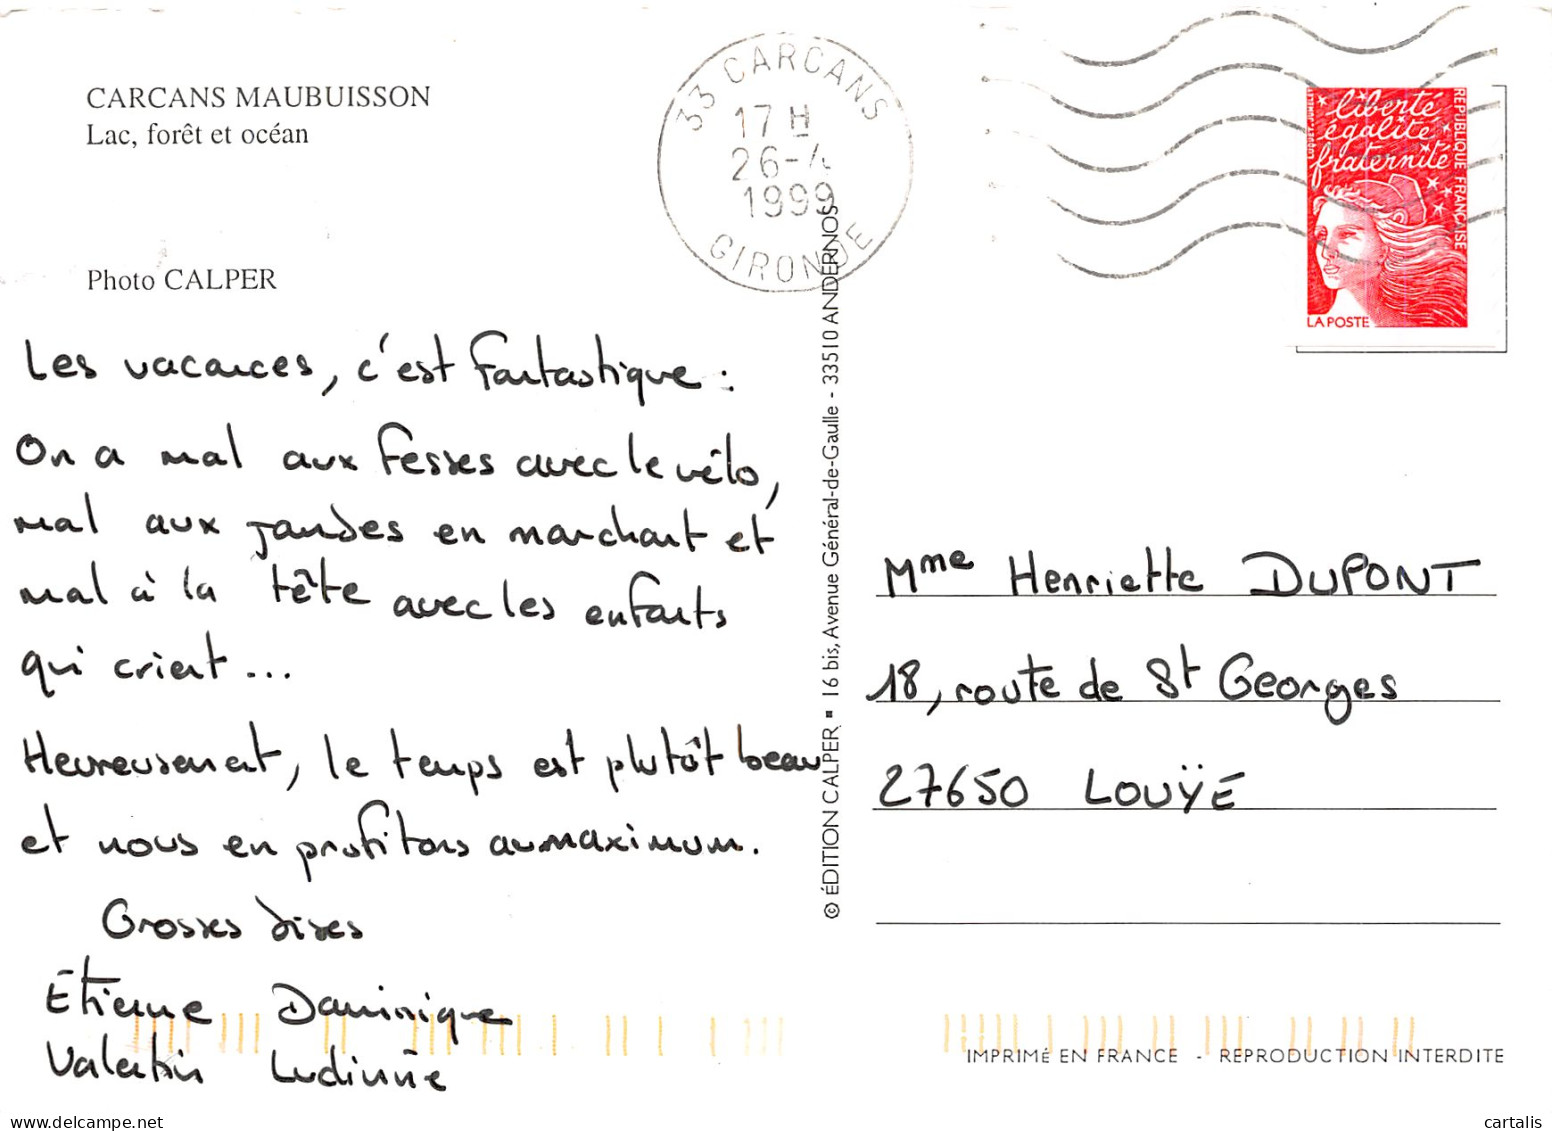 CARCANS MAUBUISSON
Lac, forêt et océan
Photo CALPER
Les vacances, c'est fantastique :
On a mal aux fesses avec le vélo,
mal aux jambes en marchant et
mal à la tête avec les enfants
qui crient...
Heureusement, le temps est plutôt beau
et nous en profitons au maximum.
Grosses bises
Etienne Dominique
Valentin Ludivine
33 CARCANS
17 H
26-4
1999
GIRONDE
© ÉDITION CALPER ▪ 16 bis, Avenue Général-de-Gaulle - 33510 ANDERNOS
liberté
égalité
fraternité
REPUBLIQUE FRANÇAISE
LA POSTE
Mme Henriette DUPONT
18, route de St Georges
27650 LOUŸE
IMPRIMé EN FRANCE - REPRODUCTION INTERDITE
delcampe.net
cartalis